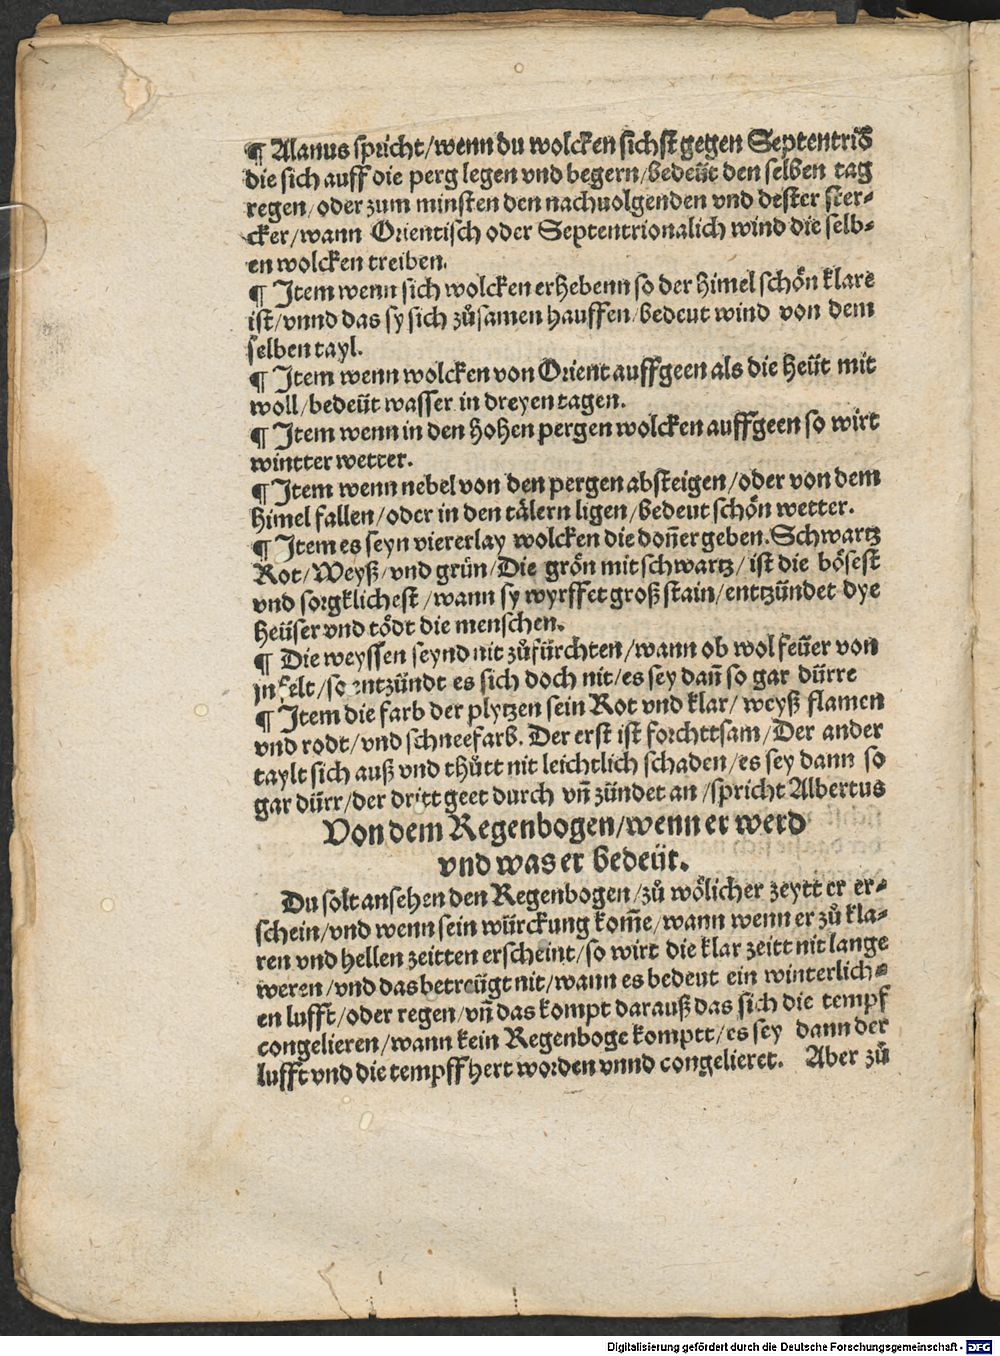 ¶ Alanus spricht/wenn du wolcken sichst gegen Septentriō
die sich auff die perg legen vnd begern/bedeüt den selben tag
regen/oder zum minsten den nachuolgenden vnd dester ster⸗
cker/wann Orientisch oder Septentrionalich wind die selb⸗
en wolcken treiben.
¶ Item wenn sich wolcken erhebenn so der himel schön klare
ist/vnnd das sy sich zůsamen hauffen/bedeut wind von dem
selben tayl.
¶ Item wenn wolcken von Orient auffgeen als die heüt mit
woll/bedeüt wasser in dreyen tagen.
¶ Item wenn in den hohen pergen wolcken auffgeen so wirt
wintter wetter.
¶ Item wenn nebel von den pergen absteigen/oder von dem
himel fallen/oder in den tälern ligen/bedeut schön wetter.
¶ Item es seyn viererlay wolcken die doñer geben. Schwartz
Rot/Weyß/vnd grün/Die grön mit schwartz/ist die bösest
vnd sorgklichest/wann sy wyrffet groß stain/enttzündet dye
heüser vnd tödt die menschen.
¶ Die weyssen seynd nit zůfürchten/wann ob wol feüer von
jn felt/so entzündt es sich doch nit/es sey dañ so gar dürre
¶ Item die farb der plytzen sein Rot vnd klar/weyß flamen
vnd rodt/vnd schneefarb. Der erst ist forchttsam/Der ander
taylt sich auß vnd thůtt nit leichtlich schaden/es sey dann so
gar dürr/der dritt geet durch vñ zündet an/spricht Albertus
Von dem Regenbogen/wenn er werd
vnd was er bedeüt.
Du solt ansehen den Regenbogen/zů wölicher zeytt er er⸗
schein/vnd wenn sein würckung kom̄e/wann wenn er zů kla⸗
ren vnd hellen zeitten erscheint/so wirt die klar zeitt nit lange
weren/vnd das betreügt nit/wann es bedeut ein winterlich⸗
en lufft/oder regen/vñ das kompt darauß das sich die tempf
congelieren/wann kein Regenboge komptt/es sey dann der
lufft vnd die tempff hert worden vnnd congelieret. Aber zů
Digitalisierung gefördert durch die Deutsche Forschungsgemeinschaft - DFG